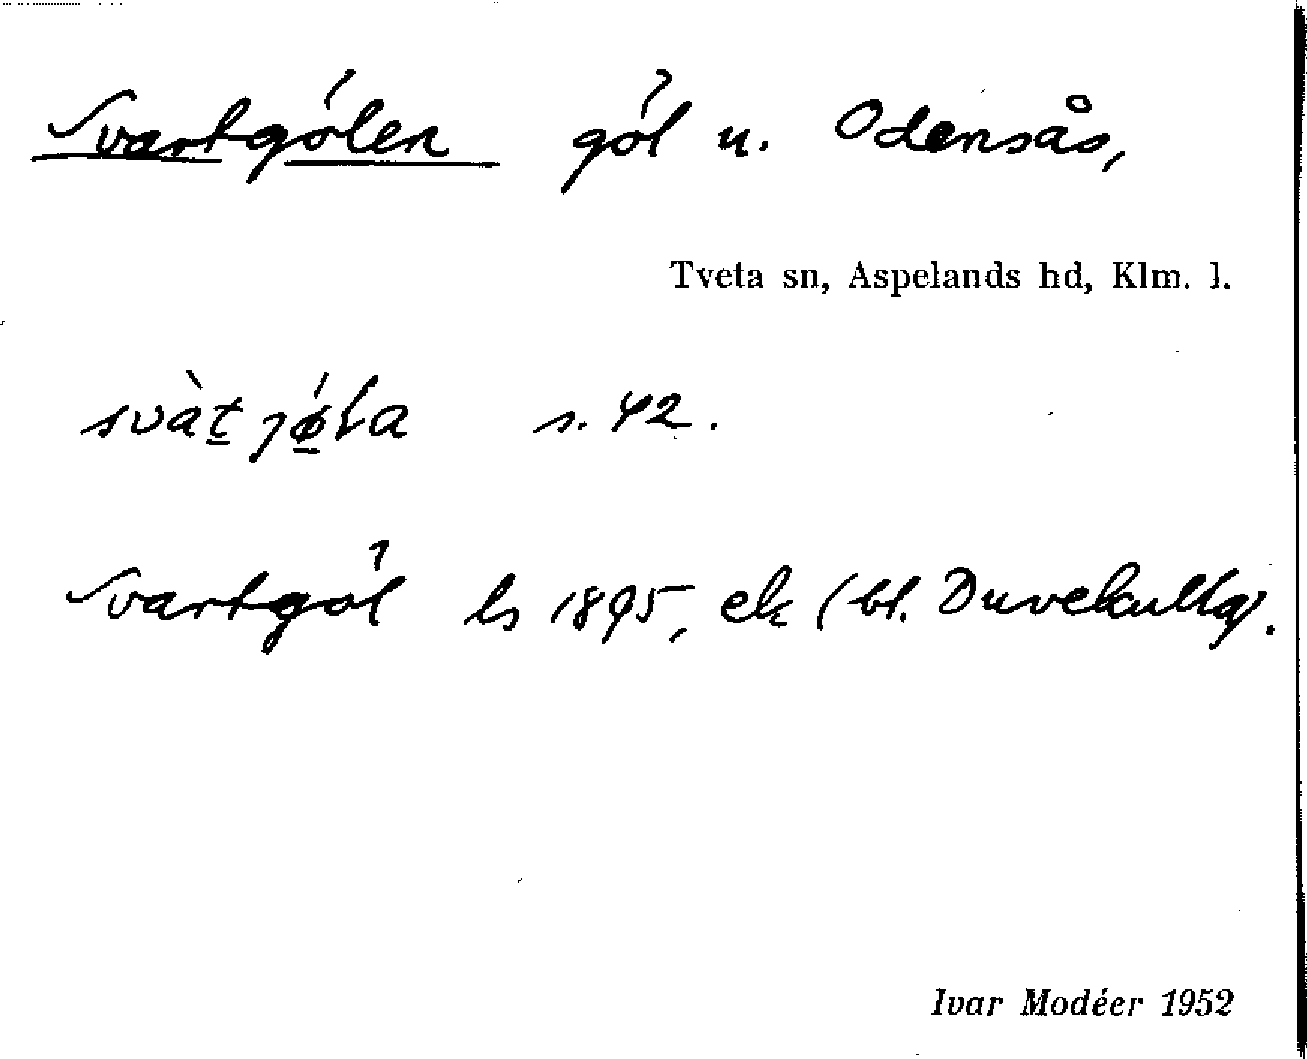 Svartgölen göl u. Odensås,
Tveta sn, Aspelands hd, Klm. l.
s. 42.
Svartgöl ls 1895, ek (bl. Duvekulla).
Ivar Modéer 1952